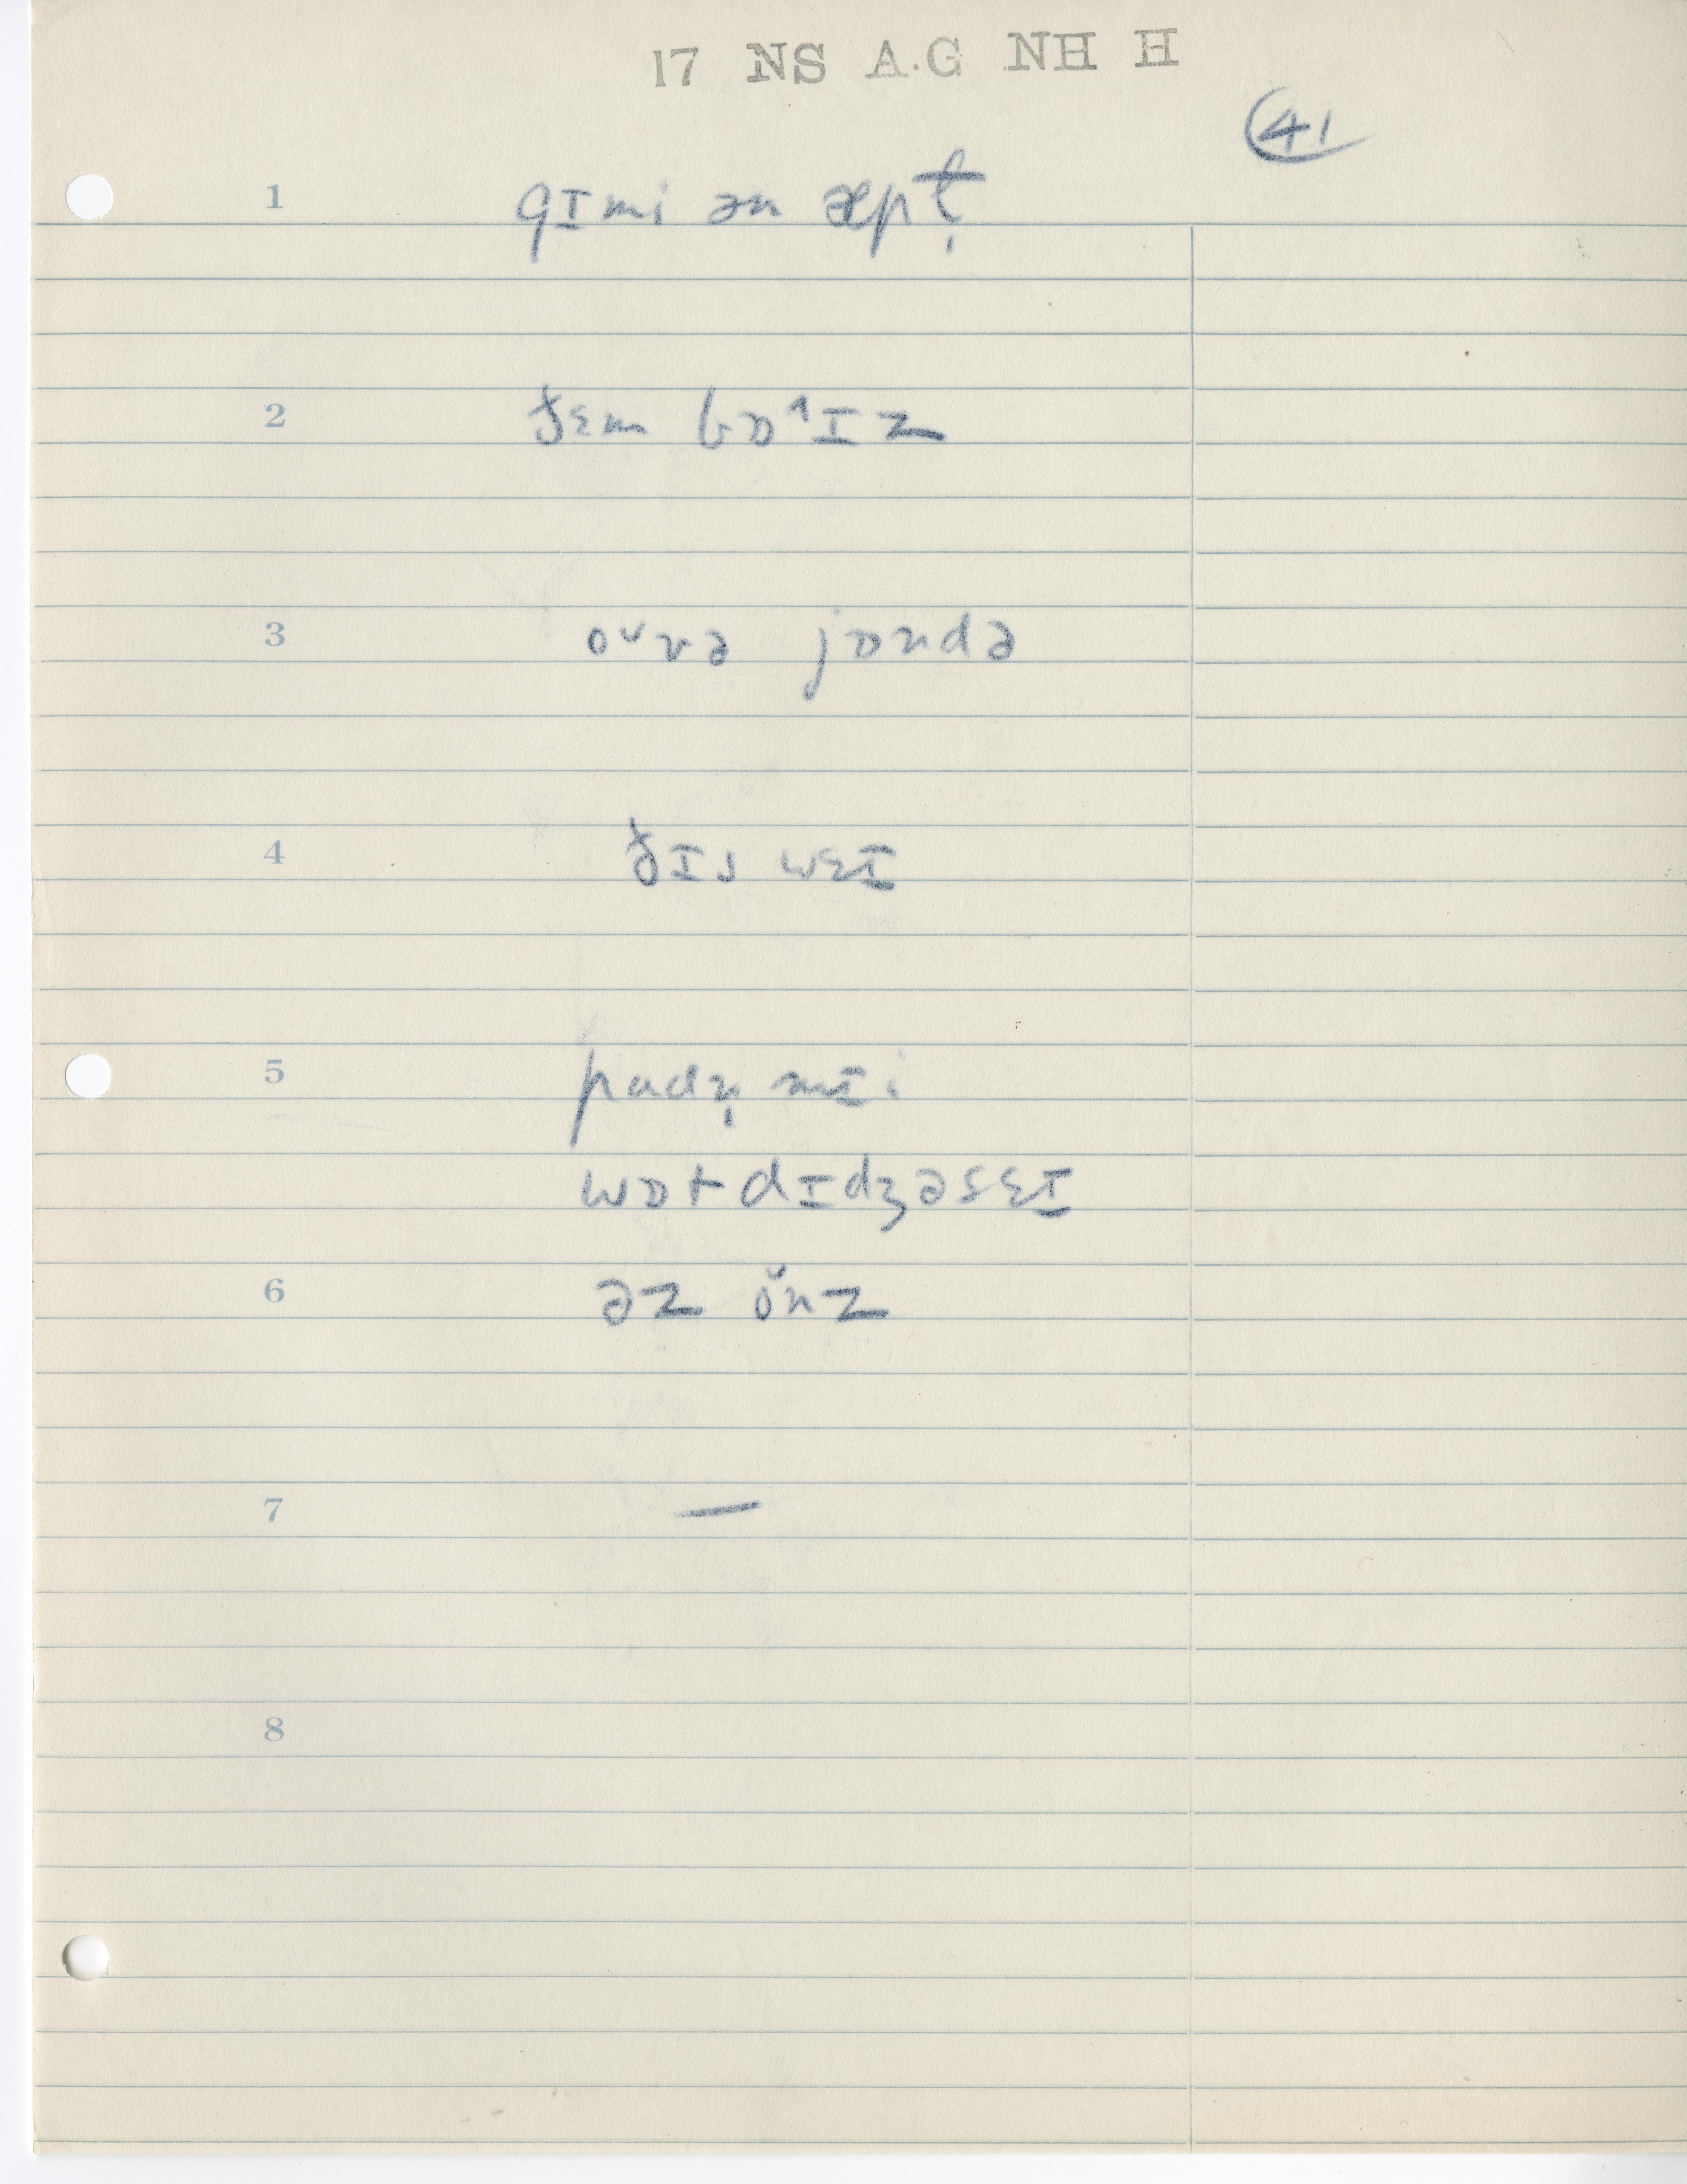 17 NS A.G NH H
41
1 gɪmi ən æpt̩
2 ðɛm bɒ˄ɪz
3 oᵛvə jɒndə
4 ðɪs wɛɪ
5 padn̩ mɪi
wɒt dɪdʒəsɛɪ
6 əz ŏnz
7 —
8